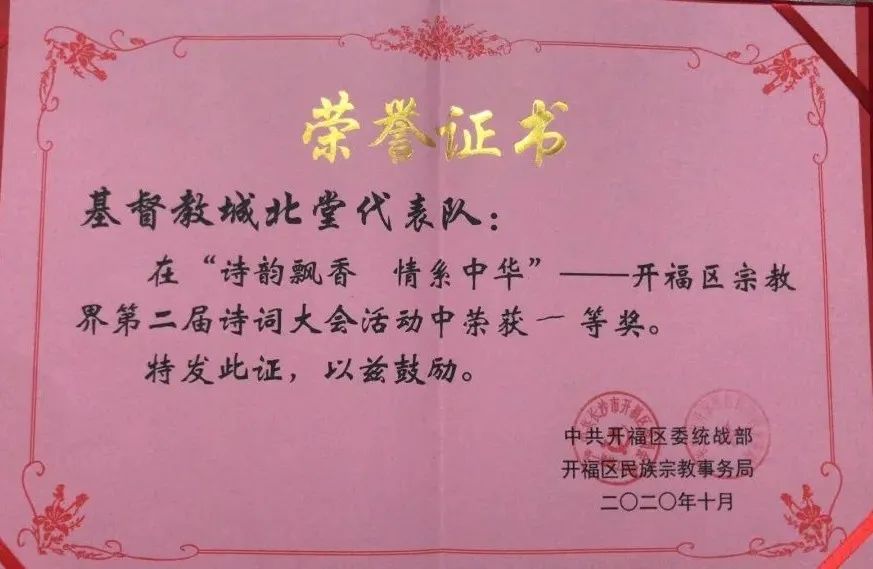 荣誉证书
基督教城北堂代表队：
在“诗韵飘香　情系中华”——开福区宗教
界第二届诗词大会活动中荣获一等奖。
特发此证，以兹鼓励。
中共开福区委统战部
开福区民族宗教事务局
二〇二〇年十月